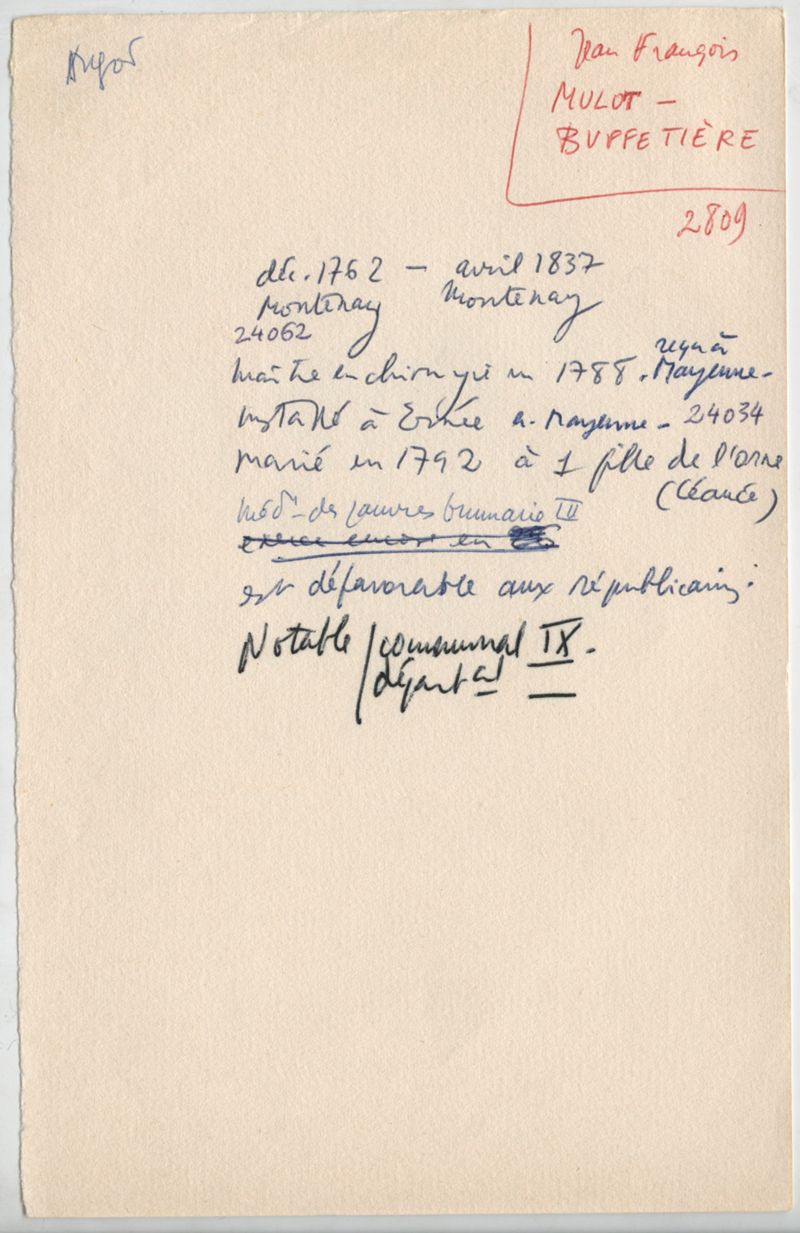 Angot
Jean François
MULOT -
BUFFETIÈRE
2809
déc. 1762 - avril 1837
Montenay Montenay
24062
maître en chirurgie en 1788. reçu à Mayenne -
installé à Ernée en Mayenne - 24034
marié en 1792 à 1 fille de l'orne
(Céaucé)
méd^n des pauvres brumaire IV
exerce encore en
est défavorable aux républicains.
Notable / communal IX.
départ^al __